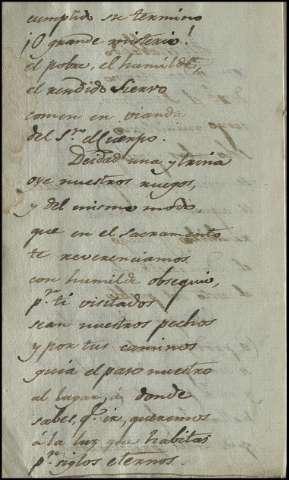 cumplido su termino
¡O grande misterio!
el pobre, el humilde,
el rendido Siervo
comen en vianda
del S.r el Cuerpo.
Deidad una y trina
oye nuestros ruegos,
y del mismo modo
que en el Sacramento
te reverenciamos
con humilde obsequio,
p.r ti visitados
sean nuestros pechos
y por tus caminos
guia el paso nuestro
al lugar, a donde
sabes, q.e ir, queremos
á la luz que habitas
p.r siglos eternos.